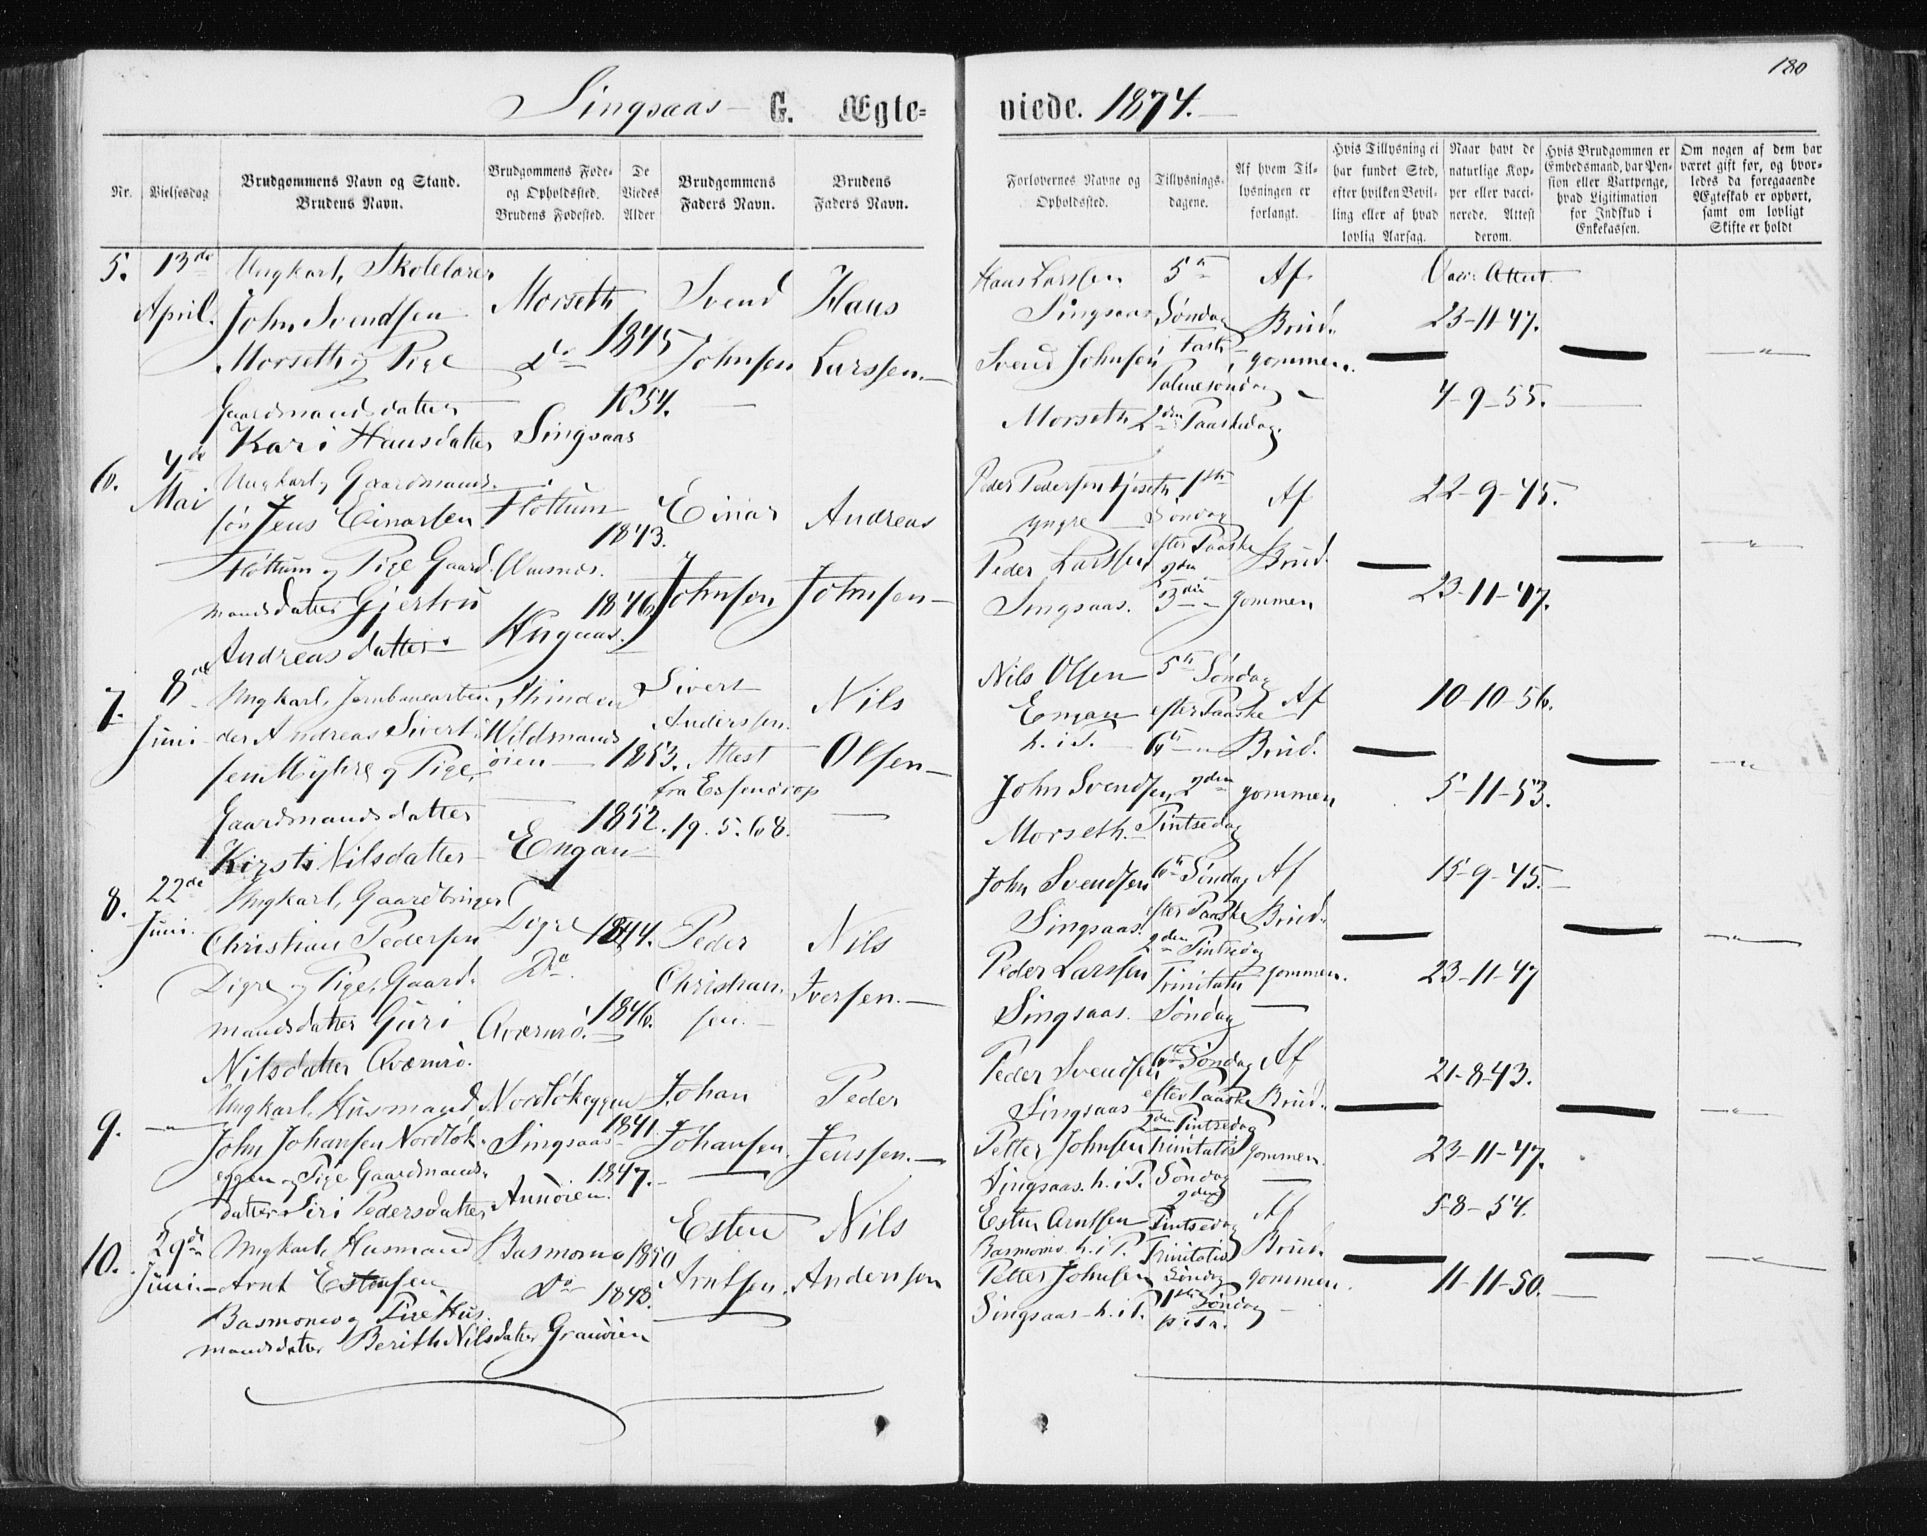 180
Singsaas G. Ægte=
viede. 1874.
Nr.
Vielsesdag
Brudgommens Navn og Stand.
Brudens Navn.
Brudgommens Føde-
og Opholdssted.
Brudens Fødested.
De
Viedes
Alder
Brudgommens
Faders Navn.
Brudens
Faders Navn.
Forlovernes Navne og
Opholdssted.
Tillysnings-
dagene.
Af hvem Til-
lysningen er
forlangt.
Hvis Tillysning ei
har fundet Sted,
efter hvilken Bevil-
ling eller af hvad
lovlig Aarsag.
Naar havt de
naturlige Kop-
per eller vacci-
nerede. Attest
derom.
Hvis Brudgommen er
Embedsmand, har Pen-
sion eller Vartpenge,
hvad Legitimation
for Indskud i
Enkekassen.
Om nogen af dem har
været gift før, og hvor-
ledes da foregaaende
Ægteskab er ophørt,
samt om lovligt
Skifte er holdt
5.
13de
April.
Ungkarl, Skolelærer
John Svendsen
Morseth og Pige
Gaardmandsdatter
Kari Hansdatter
Morseth
Do
Singsaas
1845
1854.
Svend
Johnsen
Hans
Larssen.
Hans Larssen
Singsaas
Svend Johnsen
Morseth
5te
Søndag
i Faste
Palmesøndag
2den Paaskedag.
Af
Brud-
gommen.
Vacc. Attest
23-11-47.
4-9-55.
6.
4de
Mai
Ungkarl, Gaardmands-
søn Jens Einarsen
Flottum og Pige Gaard-
mandsdatter Gjertru
Andreasdatter
Flottum
Hugaas.
1843.
1846
Einar
Johnsen
Andreas
Johnsen
Peder Pedersen
yngre
Peder Larssen
Singsaas.
1ste
Søndag
efter Paaske
2den
3die
Af
Brud-
gommen
22-9-45.
23-11-47.
7.
8de
Juni
Ungkarl, Jernbanearbei-
der Andreas Sivert-
sen Myhre og Pige
Gaardmandsdatter
Kirsti Nilsdatter
Strinden
Vildmands
øien
Engan
1853.
1852.
Sivert
Anderssen.
Attest
fra Essendrop
19.5.68.
Nils
Olsen
Nils Olsen
Engan
h. i P.
John Svendsen
Morseth.
5te Søndag
efter Paaske
6te
2den
Pintsedag
Af
Brud-
gommen
10-10-56.
5-11-53.
8.
22de
Juni.
Ungkarl, Gaardbruger
Christian Pedersen
Digre og Pige, Gaard-
mandsdatter Guri
Nilsdatter Kværnrø.
Digre
Do
Kværnrø.
1844.
1846.
Peder
Christian-
sen.
Nils
Iversen.
John Svendsen
Singsaas.
Peder Larssen
Singsaas.
6te Søndag
efter Paaske
2den Pintsedag
Trinitatis
Søndag
Af
Brud-
gommen.
15-9-45.
23-11-47
9.
Ungkarl, Husmand,
John Johansen Nordløk-
eggen og Pige Gaardmands-
datter Siri Pedersdatter
Nordløkeggen
Singsaas
Aunøien.
1841.
1847.
Johan
Johansen.
Peder
Jenssen.
Peder Svendsen
Singsaas
Petter Johnsen
Singsaas. h. i P.
6te Søndag
efter Paaske
2den Pintsedag
Trinitatis
Søndag
Af
Brud-
gommen.
21-8-43.
23-11-47.
10.
29de
Juni.
Ungkarl, Husmand
Arnt Estensen
Basmomo og Pige Hus-
mandsdatter Berith Nilsdatter Granøien
Basmomo
Do
1850
1848.
Esten
Arntsen.
Nils
Anderssen
Esten Arntsen
Basmomo. h. i P.
Petter Johnsen
Singsaas h. i P.
2den
Pintsedag
Trinitatis
Søndag
1ste Søndag
p. Tr.
Af
Brud-
gommen.
5-8-54.
11-11-50.